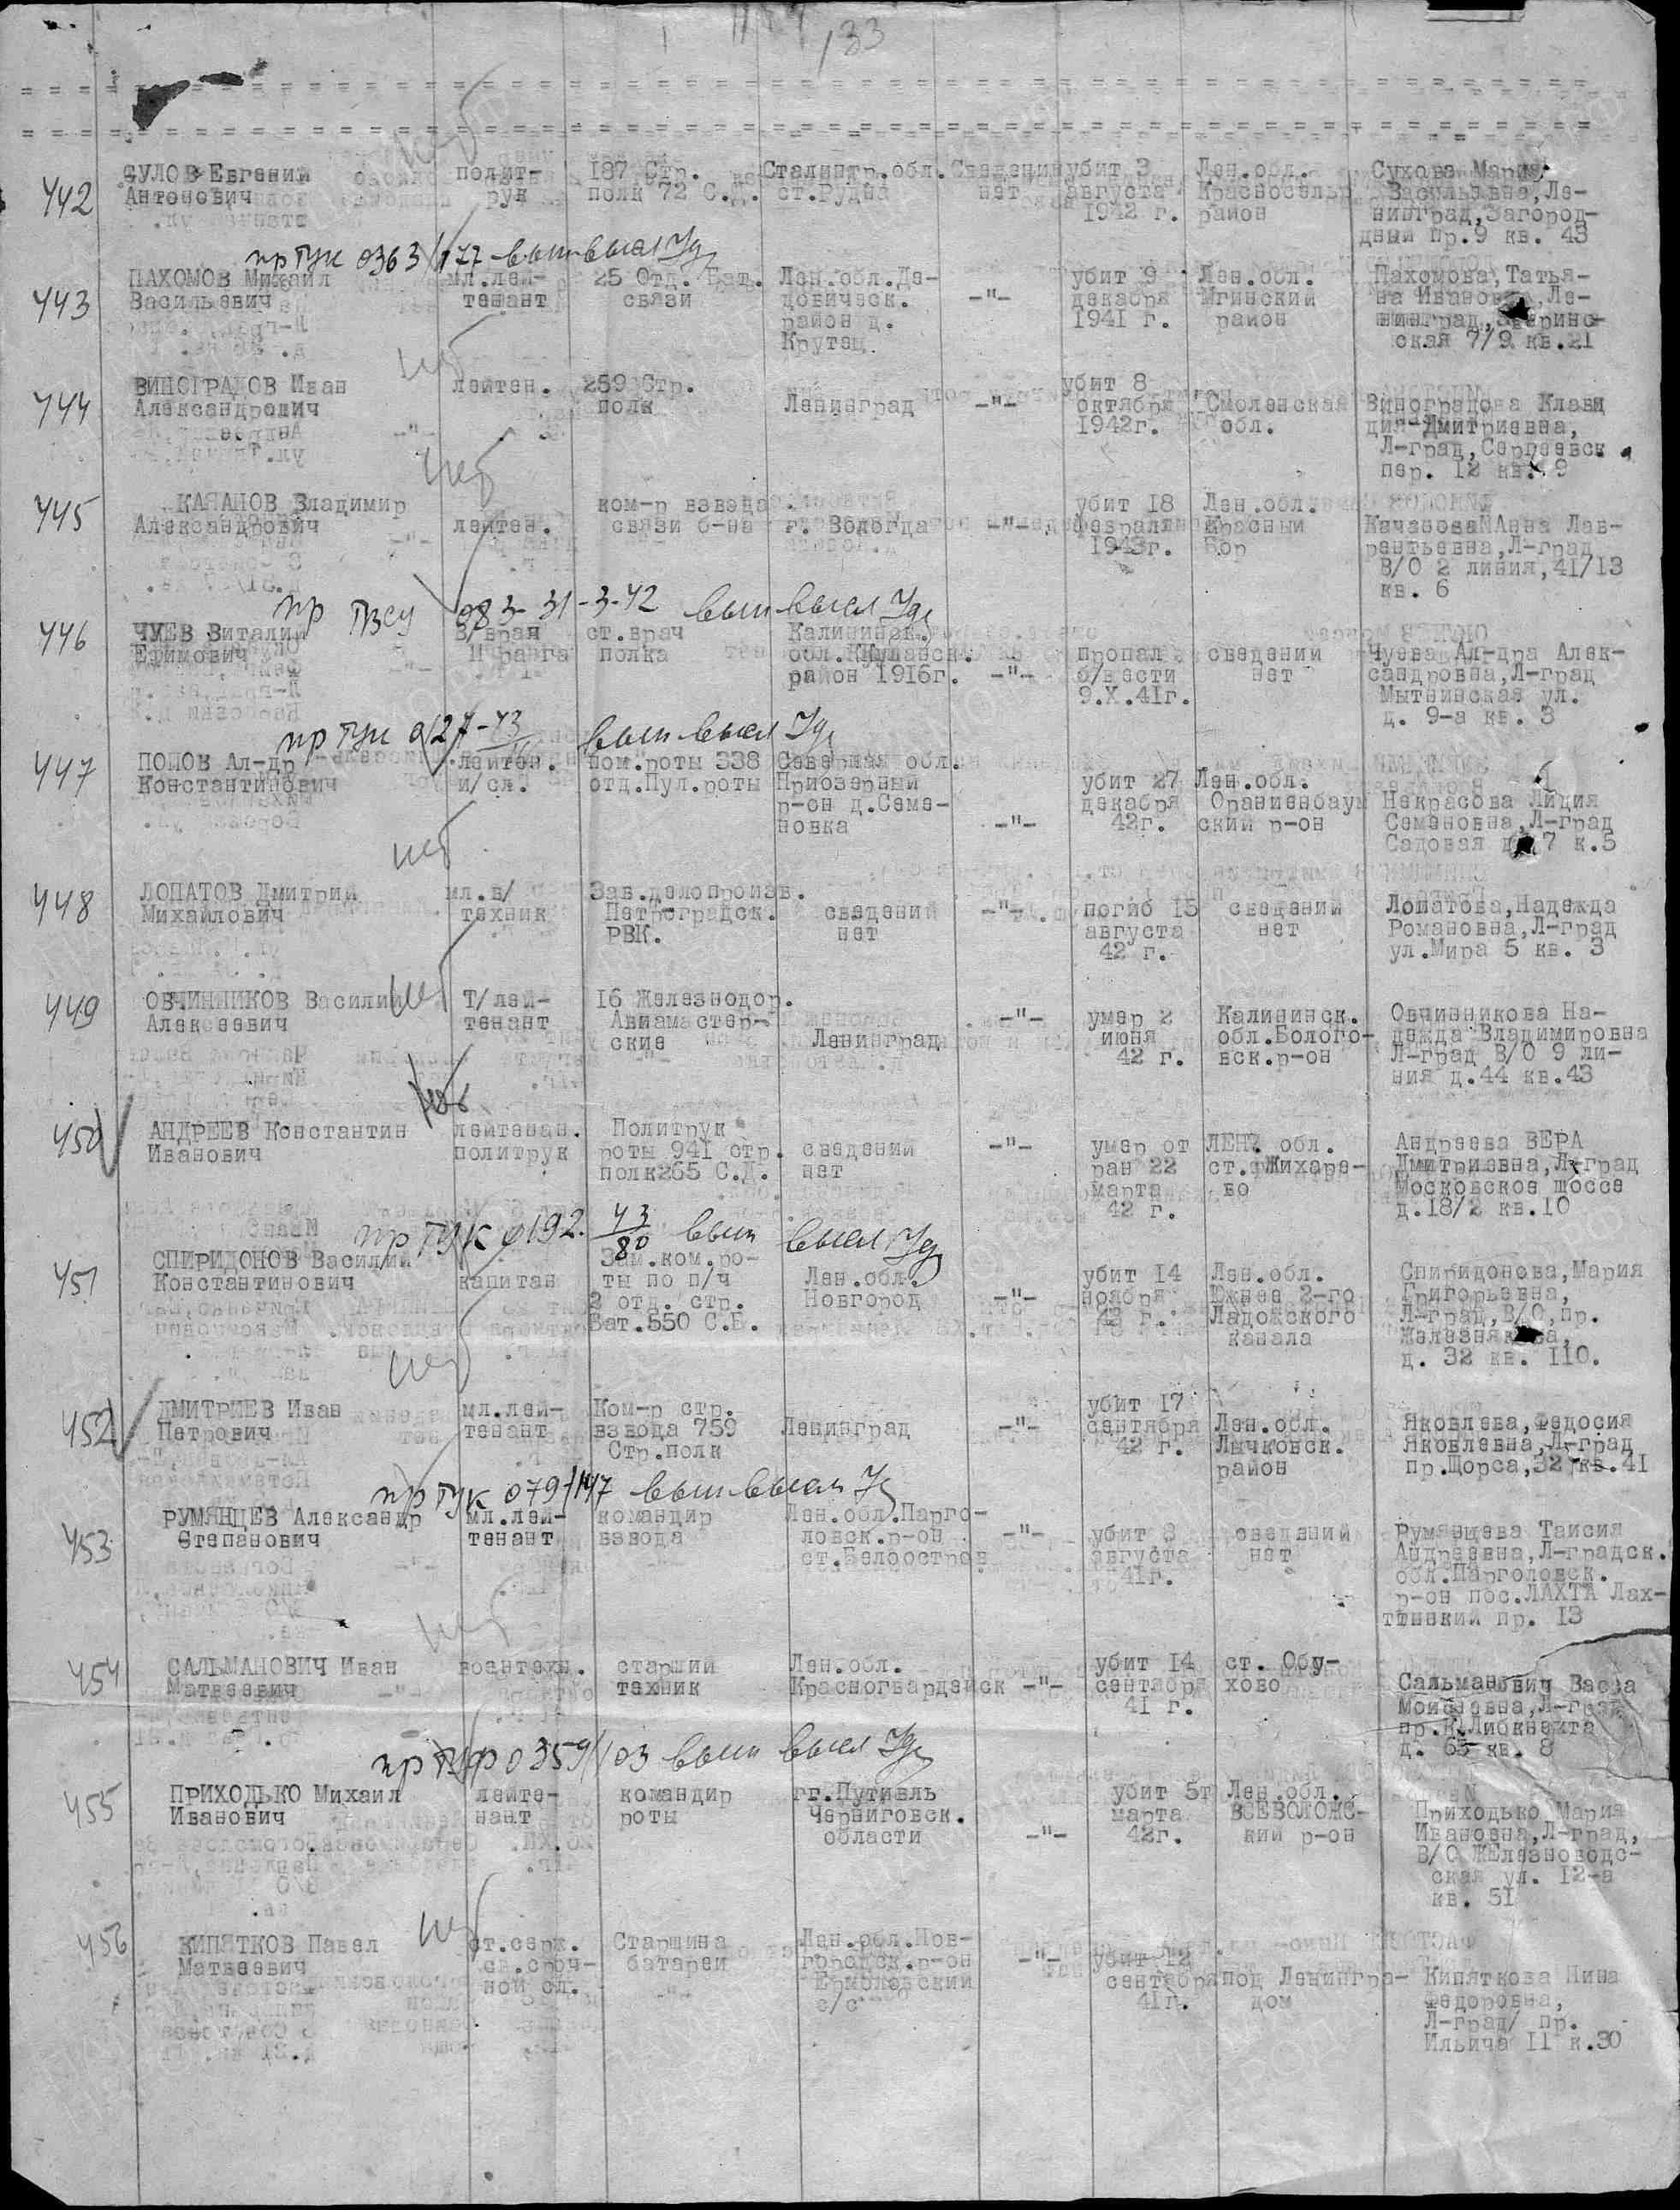 133
442
СУЛОВ Евгений полит- 187 Стр. Сталингр.обл. Сведений убит 3 Лен.обл. Сухова Мария
Антонович рук полк 72 С.Д. ст.Рудня нет августа Красносельр Васильевна, Ле-
1942 г. район нинград, Загород-
дный пр.9 кв. 43
пр ГУК 0363/177 вып высл Уд
443
ПАХОМОВ Михаил мл.лей- 25 Отд. Бат. Лен.обл.Де- убит 9 Лен.обл. Пахомова, Татья-
Васильевич тенант связи довическ. -"- декабря Мгинский на Ивановна, Ле-
район д. 1941 г. район нинград, Зверинс-
Крутец ская 7/9 кв.21
нет
444
ВИНОГРАДОВ Иван лейтен. 259 Стр. убит 8
Александрович полк Ленинград -"- октября Смоленская Виноградова Клавд
1942г. обл. дия Дмитриевна,
Л-град, Сергеевск
пер. 12 кв. 9
нет
445
КАЧАНОВ Владимир ком-р взвода убит 18 Лен.обл.
Александрович лейтен. связи б-на г. Вологда -"- февраля Красный Качанова Анна Лав-
1943г. Бор рентьевна, Л-град
В/О 2 линия, 41/13
кв. 6
пр ГВСУ 083- 31-3-42 вып высл Уд
446
ЧУЕВ Виталий В/врач ст.врач Калининск.
Ефимович II ранга полка обл. Кушавск. пропал сведений Чуева Ал-дра Алек-
район 1916г. -"- б/вести нет сандровна, Л-град
9.X.41г. Мытнинская ул.
д. 9-а кв. 3
пр ГУК 0127-43 вып высл Уд
447
ПОПОВ Ал-др лейтен. пом.роты 338 Северная обл.
Константинович и/сл. отд.Пул.роты Приозерный убит 27 Лен.обл.
р-он д.Семе- декабря Ораниенбаум Некрасова Лидия
новка -"- 42г. ский р-он Семеновна, Л-град
Садовая д. 7 к.5
нет
448
ЛОПАТОВ Дмитрий мл.в/ Зав.делопроизв.
Михайлович техник Петроградск. сведений -"- погиб 15 сведений Лопатова, Надежда
РВК. нет августа нет Романовна, Л-град
42 г. ул.Мира 5 кв. 3
нет
449
ОВЧИННИКОВ Василий Т/лей- 16 Железнодор.
Алексеевич тенант Авиамастер- -"- умер 2 Калининск. Овчинникова На-
ские Ленинград июня обл.Болого- дежда Владимировна
42 г. вск.р-он Л-град В/О 9 ли-
ния д.44 кв.43
нет
450
АНДРЕЕВ Константин лейтенан. Политрук
Иванович политрук роты 941 стр. сведений -"- умер от ЛЕН. обл. Андреева ВЕРА
полк265 С.Д. нет ран 22 ст. Жихаре- Дмитриевна, Л-град
марта во Московское шоссе
42 г. д.18/2 кв.10
пр ГУК 0192. 43/80 вып высл Уд
451
СПИРИДОНОВ Василий Зам.ком.ро-
Константинович капитан ты по п/ч Лен.обл. убит 14 Лен.обл. Спиридонова, Мария
2 отд. стр. Новгород -"- ноября Южнее 2-го Григорьевна,
Бат.550 С.Б. 42 г. Ладожского Л-град, В/О, пр.
канала Железнякова,
д. 32 кв. 110.
нет
452
ДМИТРИЕВ Иван мл.лей- Ком-р стр. убит 17
Петрович тенант взвода 759 Ленинград -"- сентября Лен.обл. Яковлева, Федосия
Стр.полк 42 г. Лычковск. Яковлевна, Л-град
район пр.Щорса, 32 кв.41
пр ГУК 079/147 вып высл Уд
453
РУМЯНЦЕВ Александр мл.лей- командир Лен.обл.Парго-
Степанович тенант взвода ловск.р-он -"- убит 3 сведений Румянцева Таисия
ст.Белоостров августа нет Андреевна, Л-градск.
41г. обл.Парголовск.
р-он пос.ЛАХТА Лах-
ттинский пр. 13
нет
454
САЛЬМАНОВИЧ Иван воентехн. старший Лен.обл. убит 14 ст. Обу-
Матвеевич техник Красногвардейск -"- сентября хово Сальманович Васса
41 г. Моисеевна, Л-град
пр.К.Либкнехта
д. 65 кв. 8
0359/103 вып высл Уд
455
ПРИХОДЬКО Михаил лейте- командир гг.Путивль убит 5т Лен.обл.
Иванович нант роты Черниговск. марта ВСЕВОЛОЖС- Приходько Мария
области -"- 42г. кий р-он Ивановна, Л-град,
В/О ЖЕлезноводс-
ская ул. 12-а
кв. 51
нет
456
КИПЯТКОВ Павел ст.серж. Старшина Лен.обл.Нов- -"- убит 12
Матвеевич св.сроч- батареи городск.р-он сентября под Ленингра- Кипяткова Нина
ной сл. Ермоловский 41г. дом Федоровна,
с/с Л-град/ пр.
Ильича 11 к.30